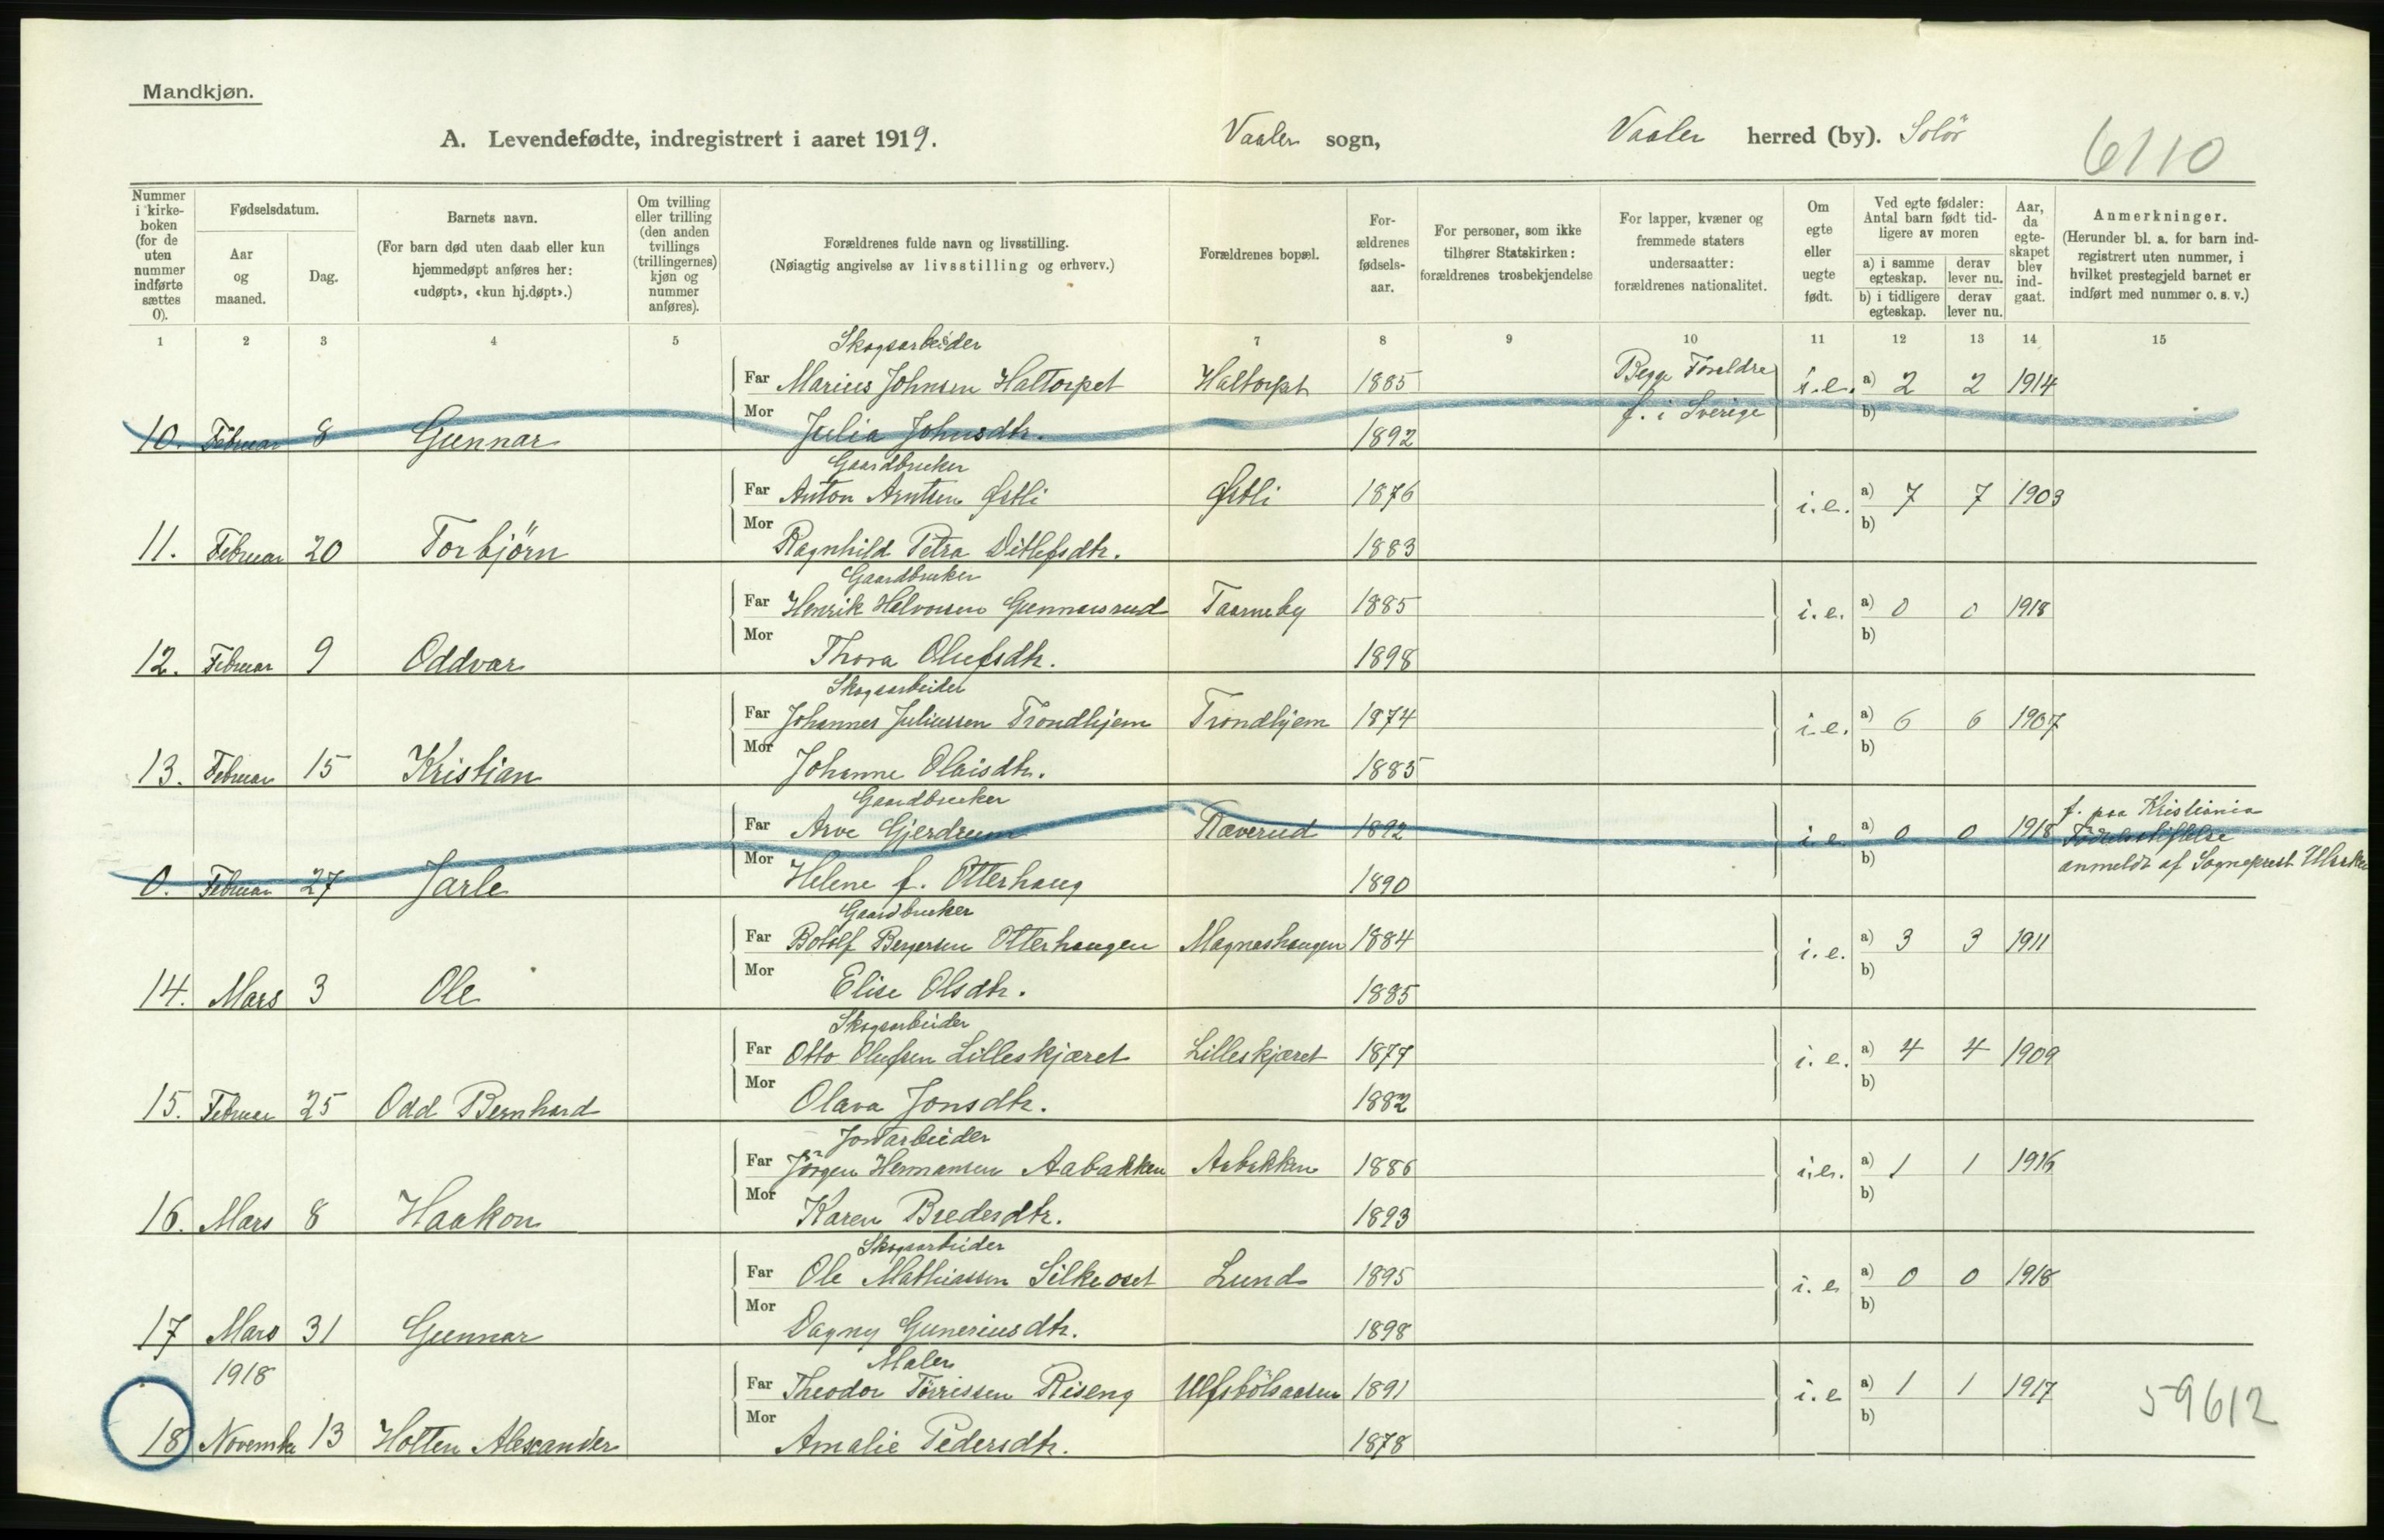 Mandkjøn.
A. Levendefødte, indregistrert i aaret 1919. Vaaler sogn, Vaaler herred (by). Solör 6110
Nummer i kirke-boken (for de uten nummer indførte sættes 0).
Fødselsdatum.
Aar og maaned.
Dag.
Barnets navn.
(For barn død uten daab eller kun hjemmedøpt anføres her: «udøpt», «kun hj.døpt».)
Om tvilling eller trilling (den anden tvillings (trillingernes) kjøn og nummer anføres).
Forældrenes fulde navn og livsstilling.
(Nøiagtig angivelse av livsstilling og erhverv.)
Forældrenes bopæl.
For-ældrenes fødsels-aar.
For personer, som ikke tilhører Statskirken: forældrenes trosbekjendelse
For lapper, kvæner og fremmede staters undersaatter: forældrenes nationalitet.
Om egte eller uegte født.
Ved egte fødsler: Antal barn født tid-ligere av moren
a) i samme egteskap. derav lever nu.
b) i tidligere egteskap. derav lever nu.
Aar, da egte-skapet blev ind-gaat.
Anmerkninger.
(Herunder bl. a. for barn ind-registrert uten nummer, i hvilket prestegjeld barnet er indført med nummer o. s. v.)
1 2 3 4 5 7 8 9 10 11 12 13 14 15
Skogsarbeider
Far Marius Johnsen Haltorpet Haltorpet 1885 Begge Foreldre i.e. a) 2 2 1914
Mor f. i Sverige b)
10. Februar 8 Gunnar Julia Johnsdtr. 1892
Gaardbruker
Far Anton Arntsen Østli Østli 1876 i.e. a) 7 7 1903
Mor b)
11. Februar 20 Torbjörn Ragnhild Petra Ditlefsdtr. 1883
Gaardbruker
Far Henrik Halvorsen Gunnarsrud Taarneby 1885 i.e. a) 0 0 1918
Mor b)
12. Februar 9 Oddvar Thora Olufsdtr. 1898
Skogsarbeider
Far Johannes Juliussen Trondhjem Trondhjem 1874 i.e. a) 6 6 1907
Mor b)
13. Februar 15 Kristian Johanne Olaisdtr. 1885
Gaardbruker f. paa Kristiania
Far Arve Gjerdrum Ræverud 1892 i.e. a) 0 0 1918 Födselsstiftelse
Mor b) anmeldt af Sogneprest
0. Februar 27 Jarle Helene f. Otterhaug 1890
Gaardbruker
Far Botolf Bergersen Otterhaugen Magneshaugen 1884 i.e. a) 3 3 1911
Mor b)
14. Mars 3 Ole Elise Olsdtr. 1885
Skogsarbeider
Far Otto Olufsen Lilleskjæret Lilleskjæret 1877 i.e. a) 4 4 1909
Mor b)
15. Februar 25 Odd Bernhard Olava Jonsdtr. 1882
Jordarbeider
Far Jörgen Hermansen Aabakken Aabakken 1886 i.e. a) 1 1 1916
Mor b)
16. Mars 8 Haakon Karen Bredesdtr. 1893
Skogsarbeider
Far Ole Mathiassen Silkeoset Lund 1895 i.e a) 0 0 1918
Mor b)
17 Mars 31 Gunnar Dagny Guneriusdtr. 1898
1918 Maler
Far Theodor Törrissen Riseng Ulfsbölsaasen 1891 i.e a) 1 1 1917 59612
Mor b)
18 November 13 Holten Alexander Amalie Pedersdtr. 1878